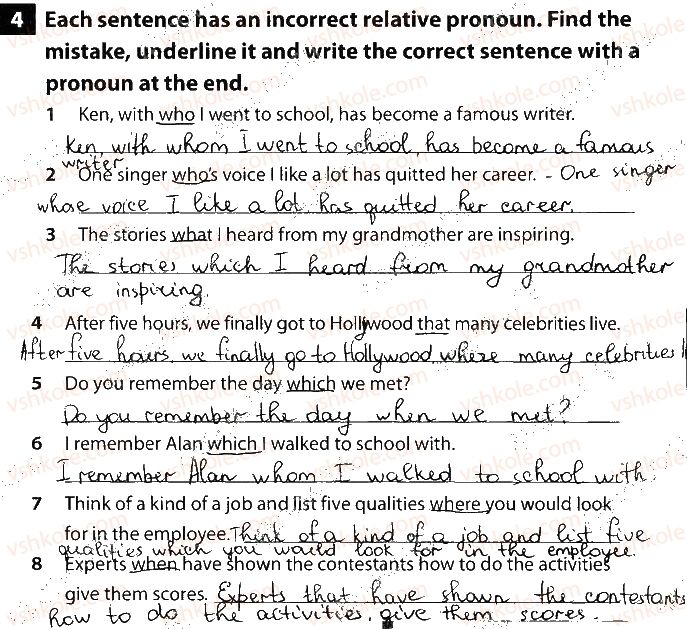 4 Each sentence has an incorrect relative pronoun. Find the
mistake, underline it and write the correct sentence with a
pronoun at the end.
1 Ken, with who I went to school, has become a famous writer.
Ken, with whom I went to school, has become a famous
writer
2 One singer who's voice I like a lot has quitted her career. - One singer
whose voice I like a lot has quitted her career.
3 The stories what I heard from my grandmother are inspiring.
The stories which I heard from my grandmother
are inspiring.
4 After five hours, we finally got to Hollywood that many celebrities live.
After five hours, we finally go to Hollywood where many celebrities l
5 Do you remember the day which we met?
Do you remember the day when we met?
6 I remember Alan which I walked to school with.
I remember Alan whom I walked to school with.
7 Think of a kind of a job and list five qualities where you would look
for in the employee. Think of a kind of a job and list five
qualities which you would look for in the employee.
8 Experts when have shown the contestants how to do the activities
give them scores. Experts that have shown the contestants
how to do the activities, give them scores.